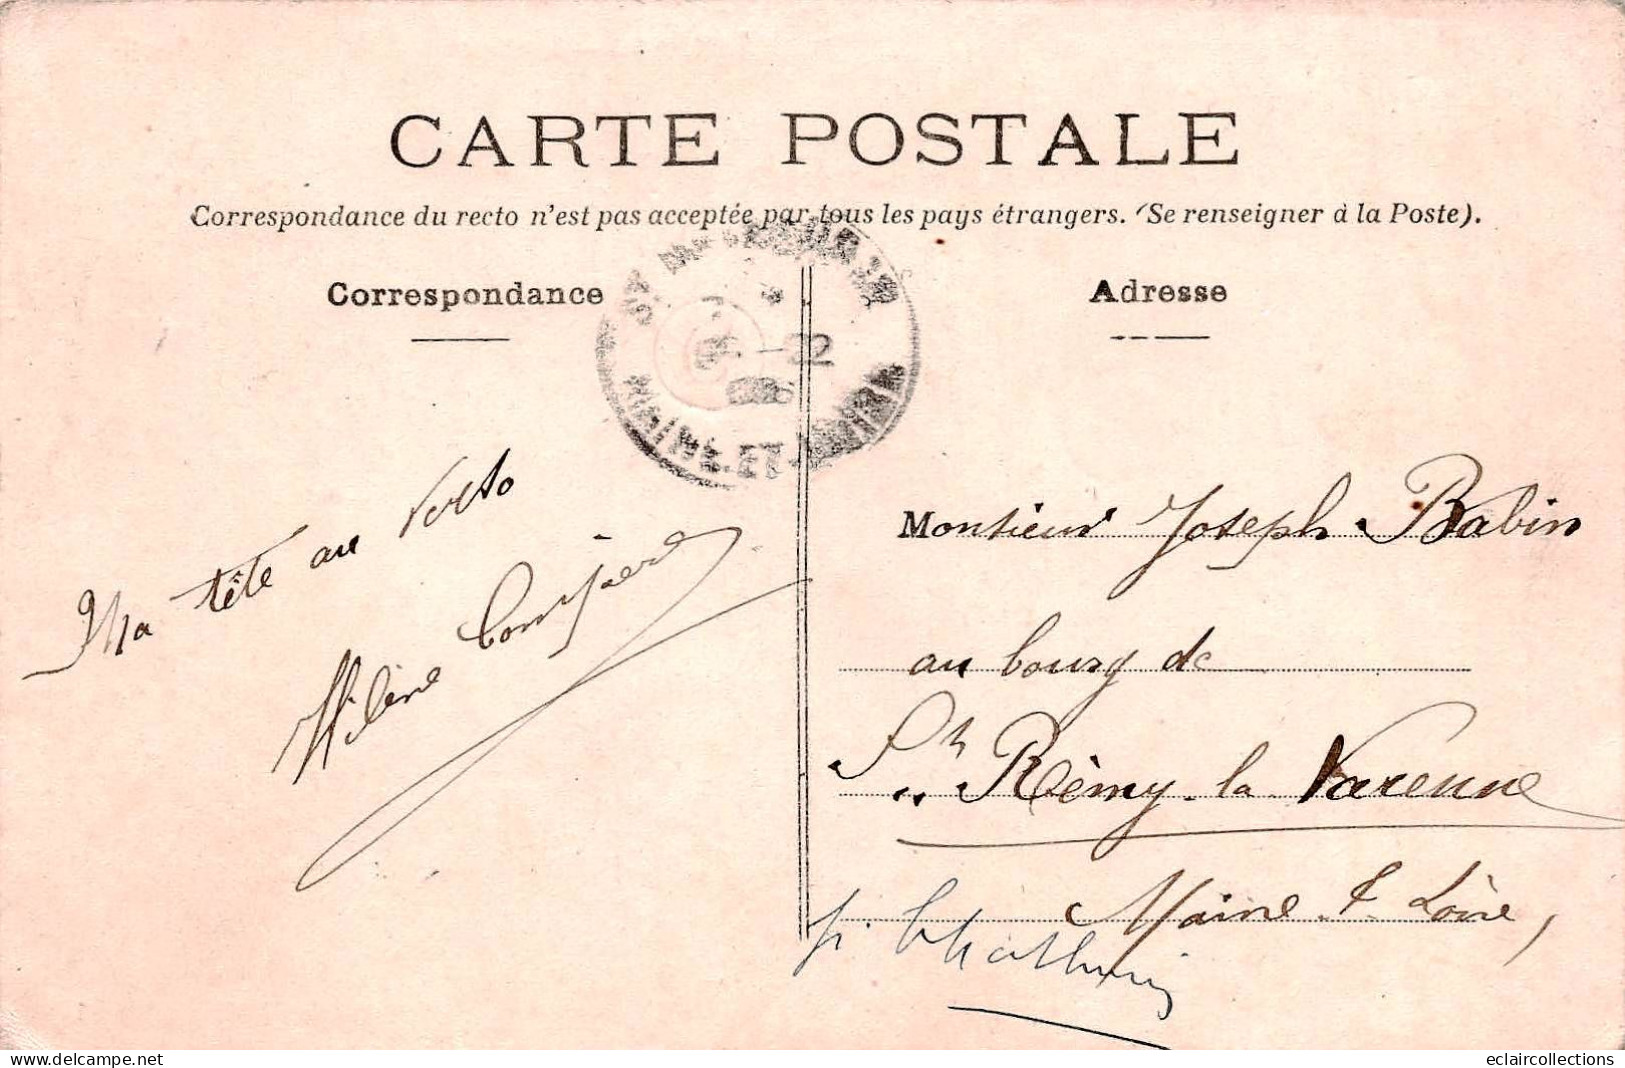 CARTE POSTALE
Correspondance du recto n'est pas acceptée par tous les pays étrangers. (Se renseigner à la Poste).
Correspondance
Adresse
-22
MAINE-ET-LOIRE
Ma tête au verso
Hélène
Monsieur Joseph Babin
au bourg de
St Rémy-la-Varenne
Maine & Loire,
delcampe.net
eclaircollections